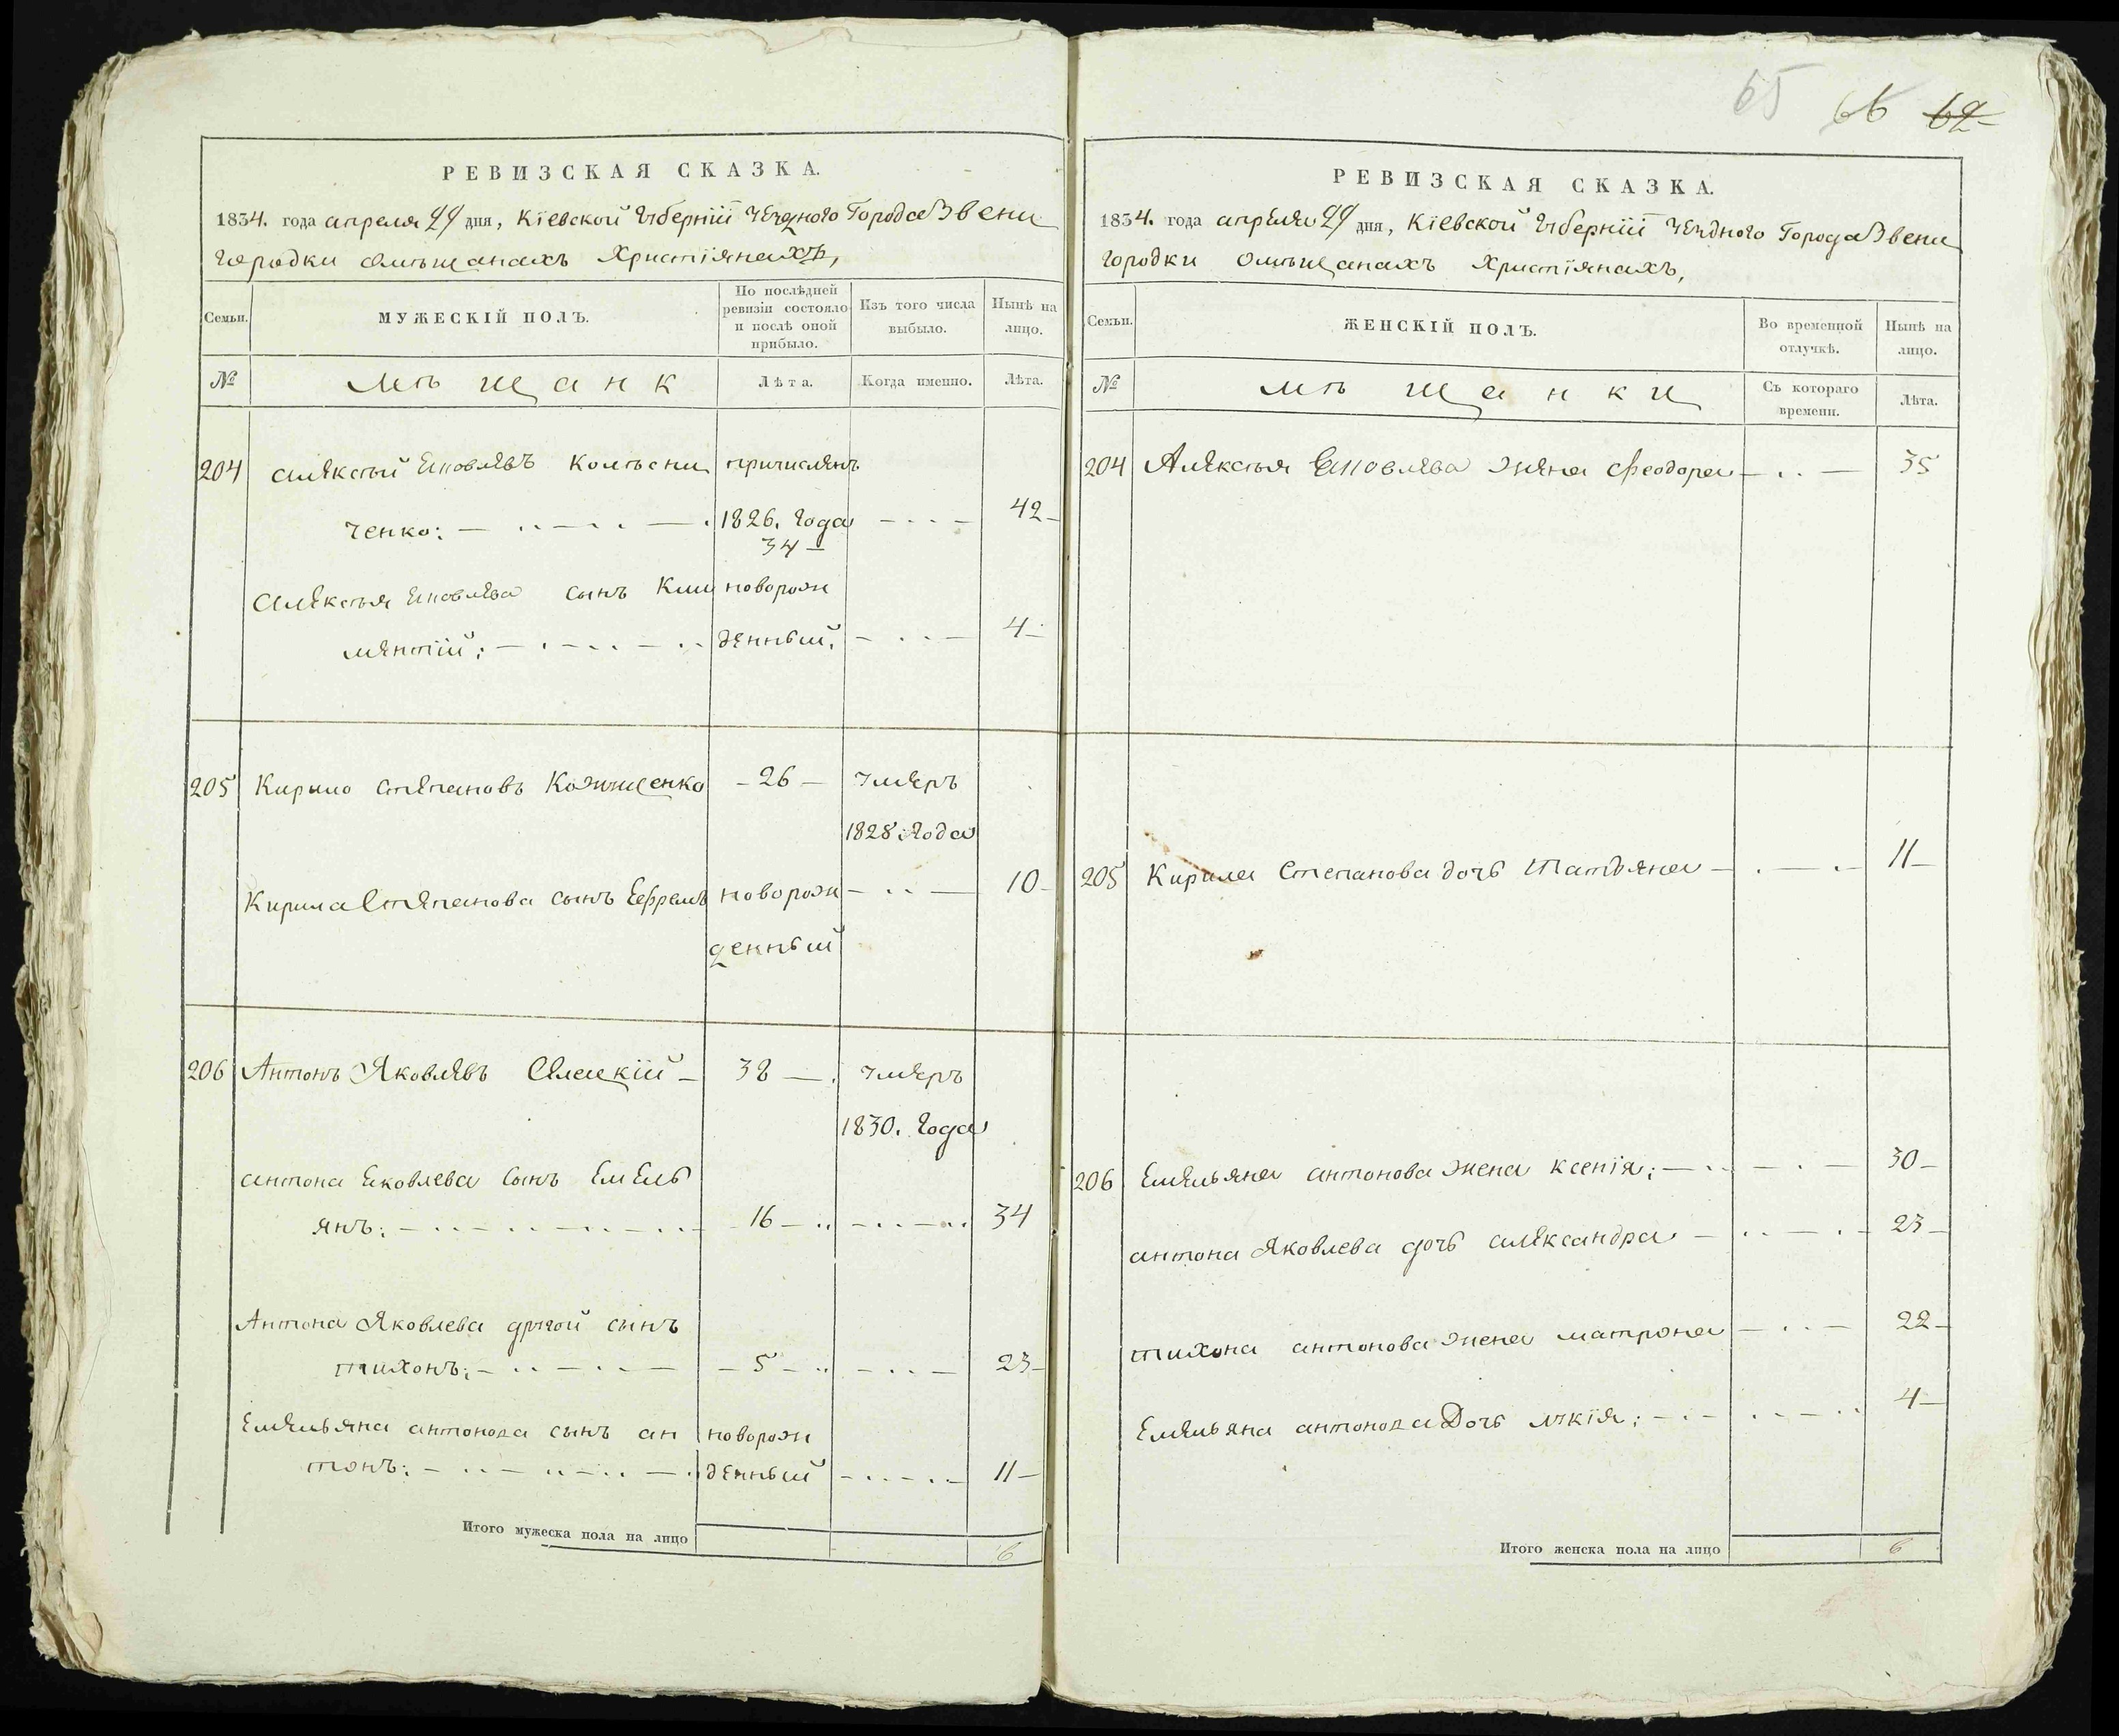 65 66 62
РЕВИЗСКАЯ СКАЗКА.
1834. года апреля 29 дня, Кіевской Губерніи уездного Города Звени
городки омѣщанахъ Христіянахъ,
Семьи.
МУЖЕСКІЙ ПОЛЪ.
По послѣдней
ревизіи состояло
и послѣ оной
прибыло.
Изъ того числа
выбыло.
Нынѣ на
лицо.
№
мѣщанк
Лѣта.
Когда именно.
Лѣта.
204 Алексѣй Яковлевъ Колѣсни причисленъ
ченко: 1826. Года 42
34
Алексѣя Яковлева сынъ Кли новорож
ментій; денный. 4
205 Кирило Степановъ 26 умеръ
1828 года
Кирила Степанова сынъ Ефремъ новорож 10
денный
206 Антонъ Яковлевъ 38 умеръ
1830. Года
антона Яковлева сынъ Емель
янъ: 16 34
Антона Яковлева другой сынъ
тихонъ; 5 23
Емельяна антонова сынъ ан новорож
тонъ: денный 11
Итого мужеска пола на лицо 6
РЕВИЗСКАЯ СКАЗКА.
1834. года апреля 29 дня, Кіевской Губерніи уездного Города Звени
городки омѣщанахъ Христіянахъ,
Семьи.
ЖЕНСКІЙ ПОЛЪ.
Во временной
отлучкѣ.
Нынѣ на
лицо.
№
мѣщанки
Съ котораго
времени.
Лѣта.
204 Алексѣя Яковлева жена Феодора 35
205 Кирила Степанова дочь Татьяна 11
206 Емельяна антонова жена ксенія; 30
антона Яковлева дочь александра 23
тихона антонова жена матрона 22
Емельяна антонова Дочь лукія; 4
Итого женска пола на лицо 6